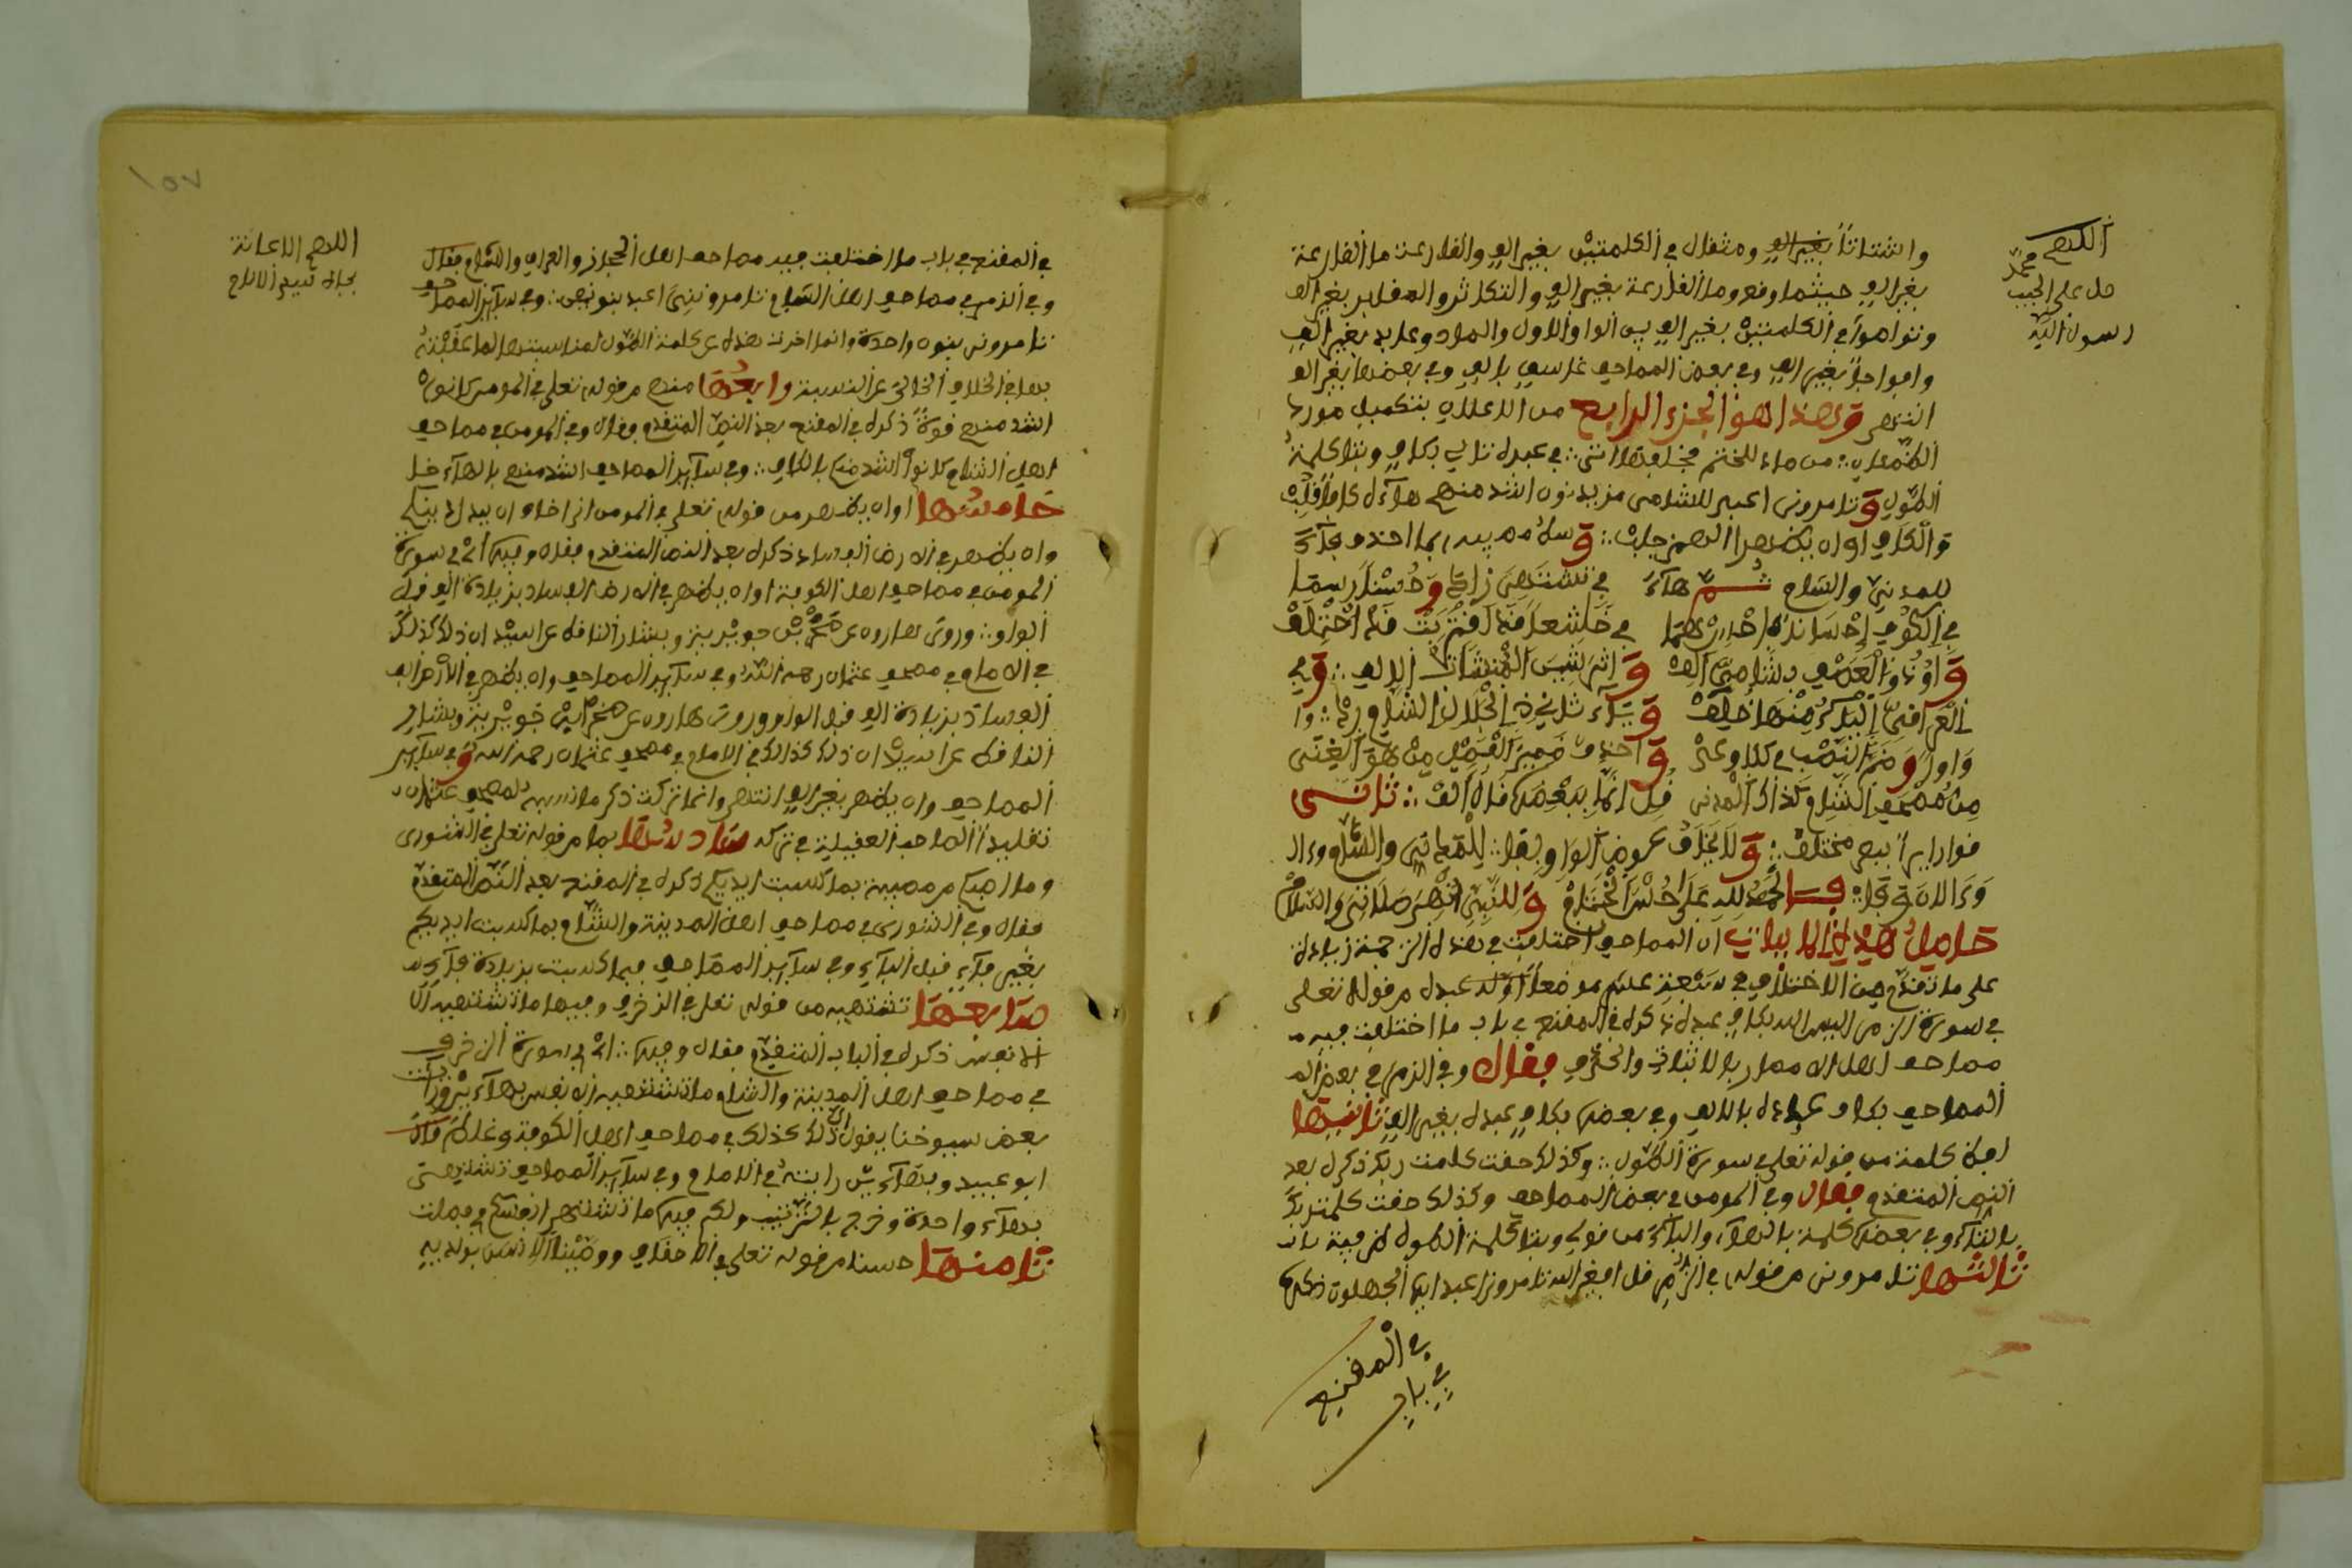 اللهم
صل على الحبيب محمد
رسول الله
واشتاتا بغير الف ومثقال في الكلمتين بغير الف والقارعة ما القارعة
بغير الف حيثما وقع وما القارعة بغير الف والتكاثر والمقابر بغير الف
وتواصوا في الكلمتين بغير الف بين الواو الاول والصاد وعابد بغير الف
وافواجا بغير الف وفي بعض المصاحف غاسق بالف وفي بعضها بغير الف
انتهى وهذا هو الجزء الرابع من الاعلان بتكميل مورد
الظمآن من صاد للختم في عبده تالي بكاف وبتا كلمة
الطول وتامرونى اعبد للشامى مزيد نون اشد منهم هاءه كافا قلب
والكاف او ان يظهرا الهمز جلب وسط مصيبة بما احذف فاء
للمدني والشام ثم هاء في تشتهى زد وحسنا رسما
في الكوف احسانا فاحذر كلهما في خاشعا قد اقتربت قد اختلف
واو ذا العصف بشامى الف المنشئات الالف وفي
العراقى الياء منها خلف وياء ثانى ذي الجلال الشام رد
واوا وضم النصب في كلا وعد واحذف ضمير الفصل من هو الغنى
من مصحف الشام كذاك المدنى قل انما ببعضها قال الف ثاني
قواريرا ببصر مختلف ولا يخاف عوض الواو بفا للمدني والشام
والحمد لله على حسن الختام وللنبي انهى صلاتى والسلام
حاصل هذه الابيات ان المصاحف اختلفت في هذه الترجمة زيادة
على ما تقدم من الاختلاف في تسعة عشر موضعا اولها عبده من قوله تعلى
في سورة الزمر اليس الله بكاف عبده ذكره في المقنع في باب ما اختلفت فيه
مصاحف اهل الامصار بالاثبات والحذف فقال وفي الزمر في بعض
المصاحف بكاف عباده بالالف وفي بعضها بكاف عبده بغير الف ثانيها
لفظ كلمة من قوله تعلى في سورة الطول وكذلك حقت كلمت ربك ذكره بعد
النص المتقدم فقال وفي المومن في بعض المصاحف وكذلك حقت كلمت ربك
بالتاء وفي بعضها كلمة بالهاء
ثالثها تامرونى من قوله في الزمر قل افغير الله تامرونى اعبد ايها الجهلون ذكره
في المقنع
في باب
اللهم الاعانة
بجاه
في المقنع في باب ما اختلفت فيه مصاحف اهل الحجاز والعراق والشام فقال
وفي الزمر في مصاحف اهل الشام تامروننى اعبد بنونين وفي سائر المصاحف
تامرونى بنون واحدة وانما اخرت هذه عن كلمة الطول لمناسبتها لما عقبته
بها في الخلاف الخالى عن النسبة رابعها منهم من قوله تعلى في المومن كانوا هم
اشد منهم قوة ذكره في المقنع بعد النص المتقدم فقال وفي المومن في مصاحف
اهل الشام كانوا هم اشد منكم بالكاف وفي سائر المصاحف اشد منهم بالهاء
خامسها او ان يظهر من قوله تعلى في المومن اني اخاف ان يبدل دينكم
وان يظهر في الارض الفساد ذكره بعد النص المتقدم فقال وفيها اي في سورة
المومن في مصاحف اهل الكوفة او ان يظهر في الارض الفساد بزيادة الف قبل
الواو وروى هارون عن صخر بن جويرية وبشار الناقط عن اسيد ان ذلك كذلك
في الامام مصحف عثمان رحمه الله وفي سائر المصاحف وان يظهر في الارض
الفساد بزيادة الف قبل الواو وروى هارون عن صخر بن جويرية وبشار
الناقط عن اسيد ان ذلك كذلك في الامام في مصحف عثمان رحمه الله وفي سائر
المصاحف وان يظهر بغير الف انتهى وانما تركت ذكر ما نسبه لمصحف عثمان
تقليدا لصاحب العقيلة في تركه سادسها بما من قوله تعلى في الشورى
وما اصبكم من مصيبة بما كسبت ايديكم ذكره في المقنع بعد النص المتقدم
فقال وفي الشورى في مصاحف اهل المدينة والشام بما كسبت ايديكم
بغير فاء قبل الباء وفي سائر المصاحف فبما كسبت بزيادة فاء
سابعها تشتهيه من قوله تعلى في الزخرف وفيها ما تشتهيه
الانفس ذكره في الباب المتقدم فقال وفيها اي في سورة الزخرف
في مصاحف اهل المدينة والشام ما تشتهيه الانفس بهاءين ورايت
بعض شيوخنا يقول ان ذلك كذلك في مصاحف اهل الكوفة وغلط قال
ابو عبيد وبهاءين رايته في الامام وفي سائر المصاحف تشتهى
بهاء واحدة وخرج بالترتيب ولكم فيها ما تشتهى انفسكم في فصلت
ثامنها حسنا من قوله تعلى في الاحقاف ووصينا الانسن بولديه